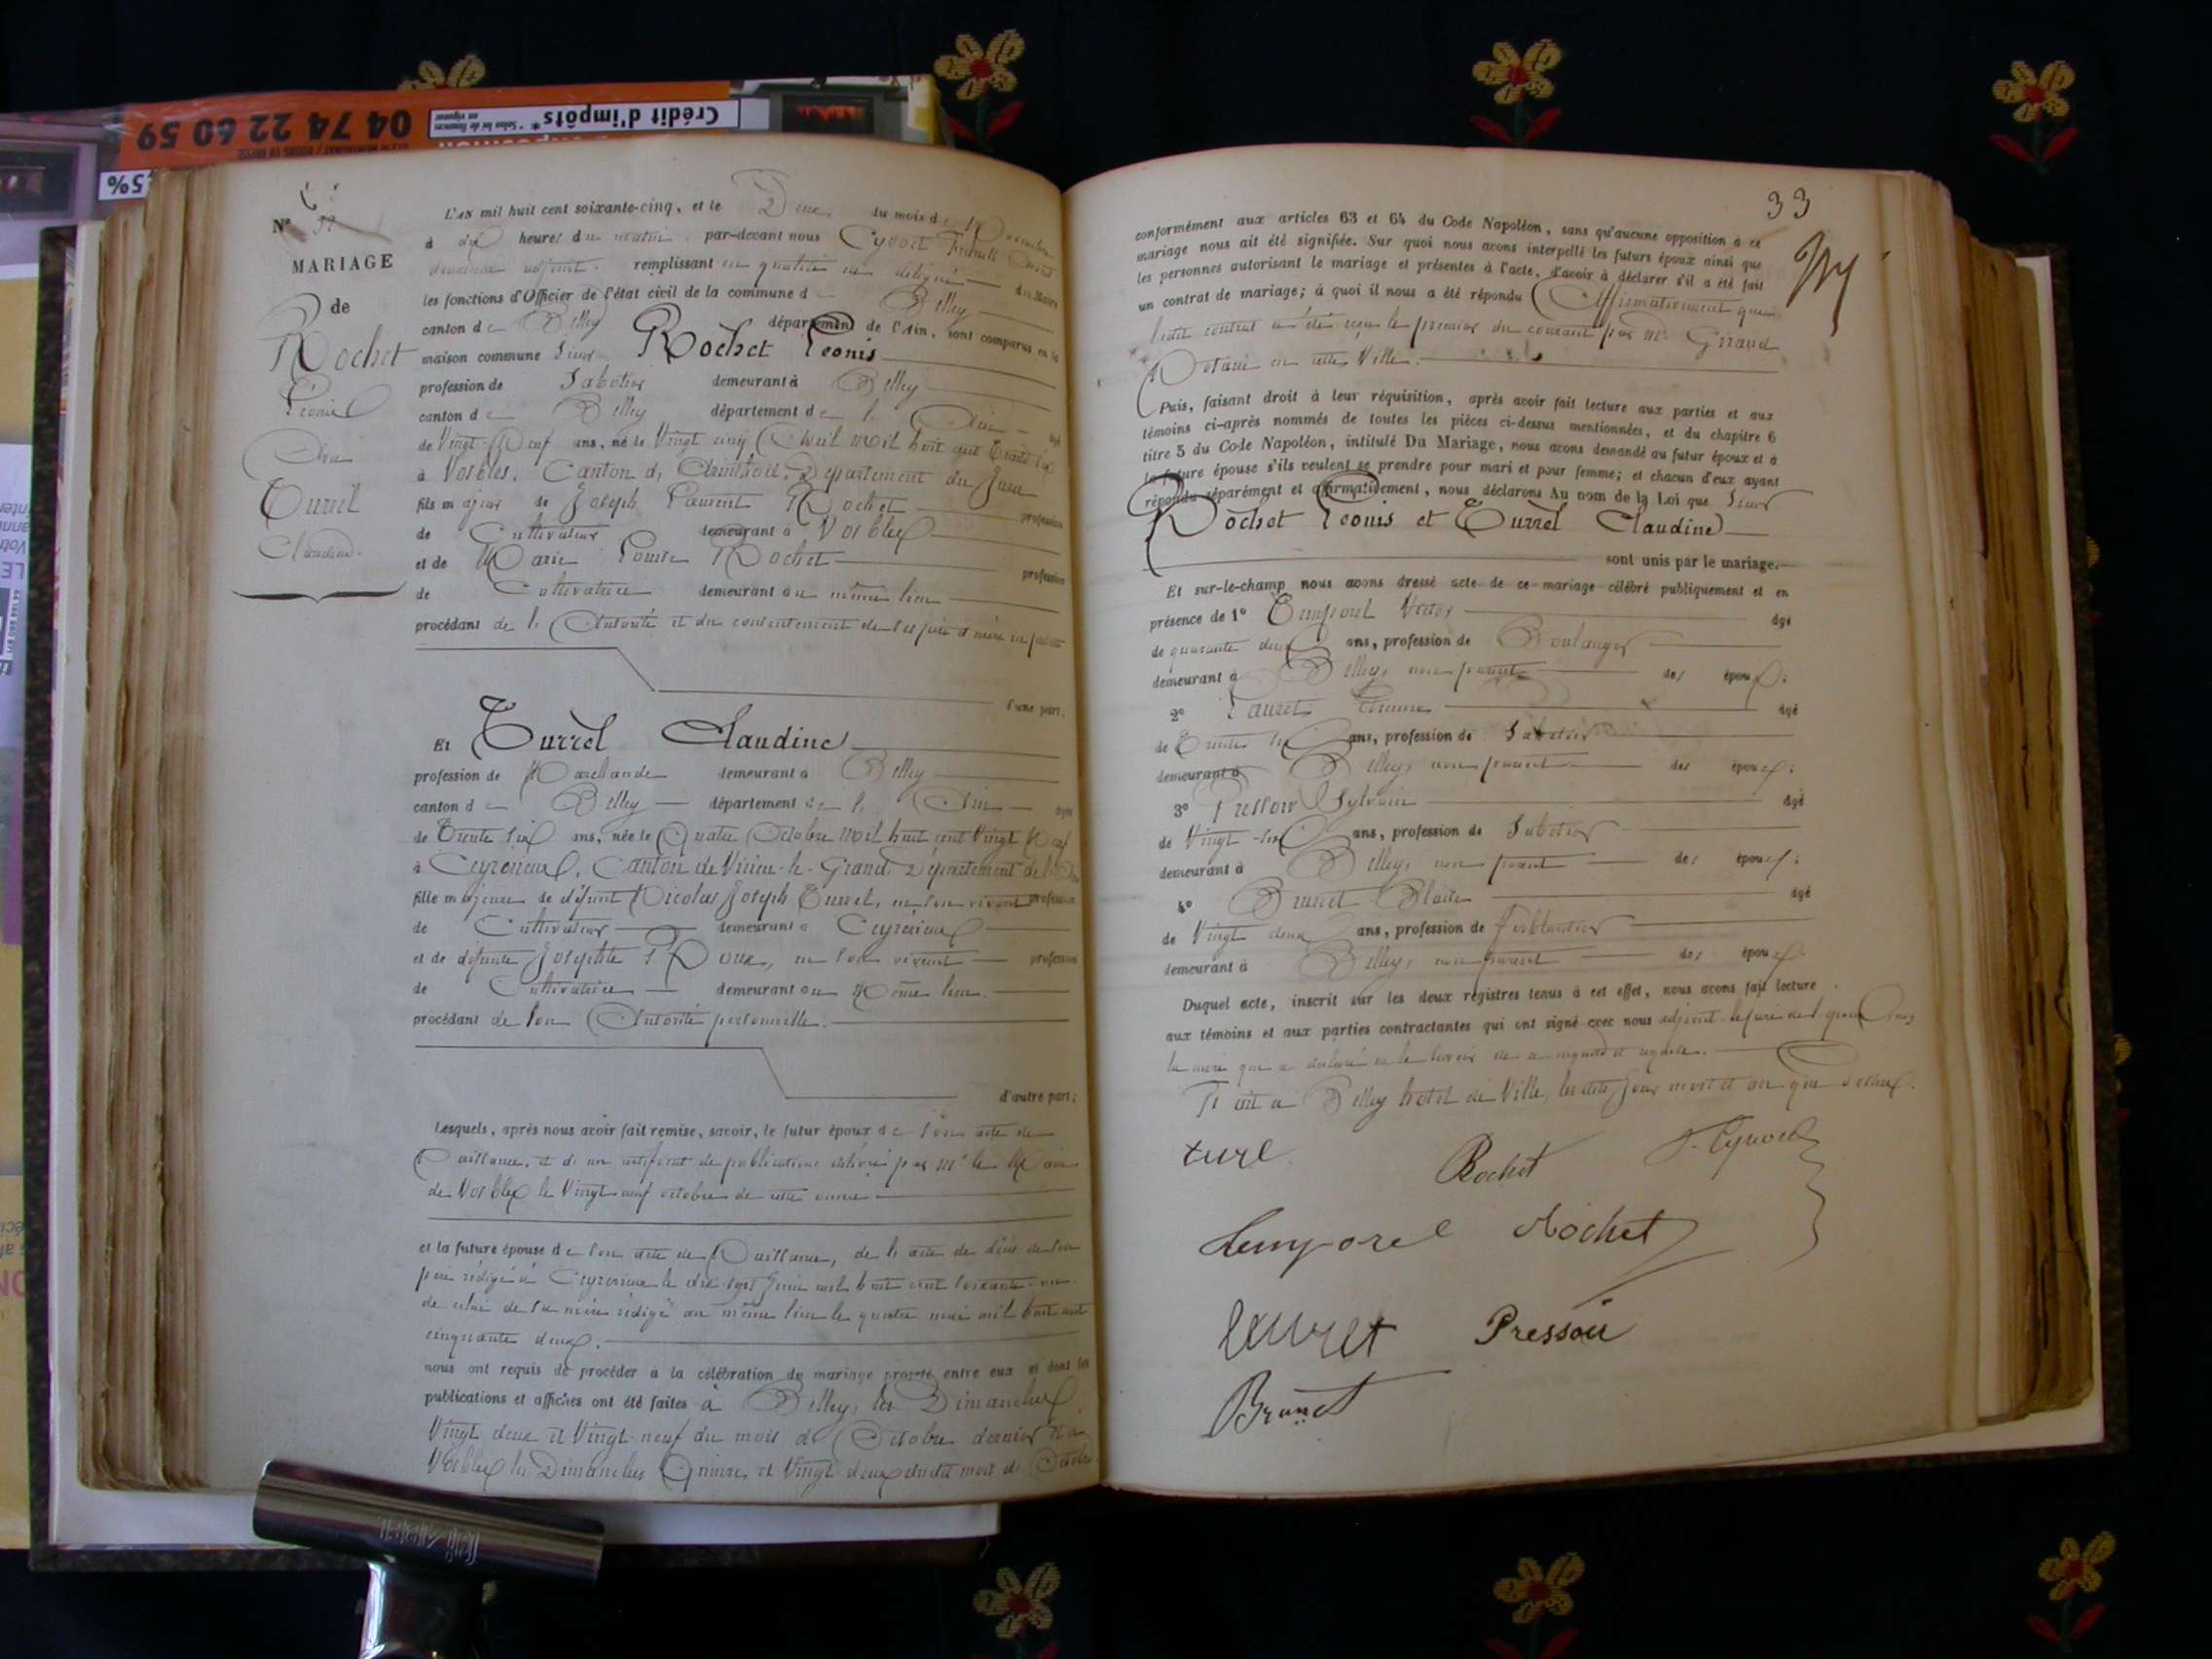 04 74 22 60 59
Crédit d'impôts*
* Selon loi de finances
en vigueur
5%
N° 32
MARIAGE
de
Rochet
Léonis
Avec
Turrel
Claudine
L'AN mil huit cent soixante-cinq, et le Deux du mois de Novembre
à dix heures du matin par-devant nous Cyvoct
deuxième adjoint remplissant en qualité de délégué du Maire
les fonctions d'Officier de l'état civil de la commune de Belley
canton de Belley département de l'Ain, sont comparus en la
maison commune Sieur Rochet Léonis
profession de Sabotier demeurant à Belley
canton de Belley département de l'Ain âgé
de Vingt-Neuf ans, né le Vingt cinq Avril mil huit cent Trente six
à Vosbles, Canton d'Arinthod, Département du Jura
fils majeur de Joseph Laurent Rochet profession
de Cultivateur demeurant à Vosbles
et de Marie Louise Rochet profession
de Cultivatrice demeurant au même lieu
procédant de l'Autorité et du consentement de ses père et mère ici présents
d'une part;
Et Turrel Claudine
profession de Marchande demeurant à Belley
canton de Belley département de l'Ain âgée
de Trente six ans, née le Quatre Octobre mil huit cent Vingt Neuf
à Ceyzérieux, Canton de Virieu-le-Grand, Département de l'Ain
fille majeure de défunt Nicolas Joseph Turrel, en son vivant profession
de Cultivateur demeurant à Ceyzérieux
et de défunte Josephte Roux, en son vivant profession
de Cultivatrice demeurant au Même lieu
procédant de son Autorité personnelle.
d'autre part;
Lesquels, après nous avoir fait remise, savoir, le futur époux de son acte de
Naissance, et de un certificat de publications délivré par Mr le Maire
de Vosbles le Vingt neuf octobre de cette année
et la future épouse de son acte de Naissance, de l'acte de décès de son
père rédigé à Ceyzérieux le dix sept Juin mil huit cent soixante-un
de celui de sa mère rédigé au même lieu le quatre mai mil huit cent
cinquante deux.
nous ont requis de procéder à la célébration du mariage projeté entre eux et dont les
publications et affiches ont été faites à Belley, les Dimanches
Vingt deux et Vingt-neuf du mois de Octobre dernier et à
Vosbles les Dimanches Quinze et Vingt deux dudit mois de Octobre
33
conformément aux articles 63 et 64 du Code Napoléon, sans qu'aucune opposition à ce
mariage nous ait été signifiée. Sur quoi nous avons interpellé les futurs époux ainsi que
les personnes autorisant le mariage et présentes à l'acte, d'avoir à déclarer s'il a été fait
un contrat de mariage; à quoi il nous a été répondu Affirmativement que
ledit contrat a été reçu le premier du courant par Me Giraud
Notaire en cette Ville.
Puis, faisant droit à leur réquisition, après avoir fait lecture aux parties et aux
témoins ci-après nommés de toutes les pièces ci-dessus mentionnées, et du chapitre 6
titre 5 du Code Napoléon, intitulé Du Mariage, nous avons demandé au futur époux et à
la future épouse s'ils veulent se prendre pour mari et pour femme; et chacun d'eux ayant
répondu séparément et affirmativement, nous déclarons Au nom de la Loi que Sieur
Rochet Léonis et Turrel Claudine
sont unis par le mariage.
Et sur-le-champ nous avons dressé acte de ce mariage célébré publiquement et en
présence de 1° Temporel Victor âgé
de quarante deux ans, profession de Boulanger
demeurant à Belley, non parent des époux;
2° Lauret Etienne âgé
de Trente six ans, profession de Sabotier
demeurant à Belley, non parent des époux;
3° Pressoir Sylvain âgé
de Vingt-six ans, profession de Sabotier
demeurant à Belley, non parent des époux;
4° Brunet Blaise âgé
de Vingt deux ans, profession de Ferblantier
demeurant à Belley, non parent des époux.
Duquel acte, inscrit sur les deux registres tenus à cet effet, nous avons fait lecture
aux témoins et aux parties contractantes qui ont signé avec nous adjoint
la mère qui a déclaré ne le savoir de ce enquise et requise.
Fait à Belley hotel de Ville, les dits Jour mois et an que dessus.
turel
Rochet
J. Cyvoct
temporel
Rochet
lauret
Pressoir
Brunet